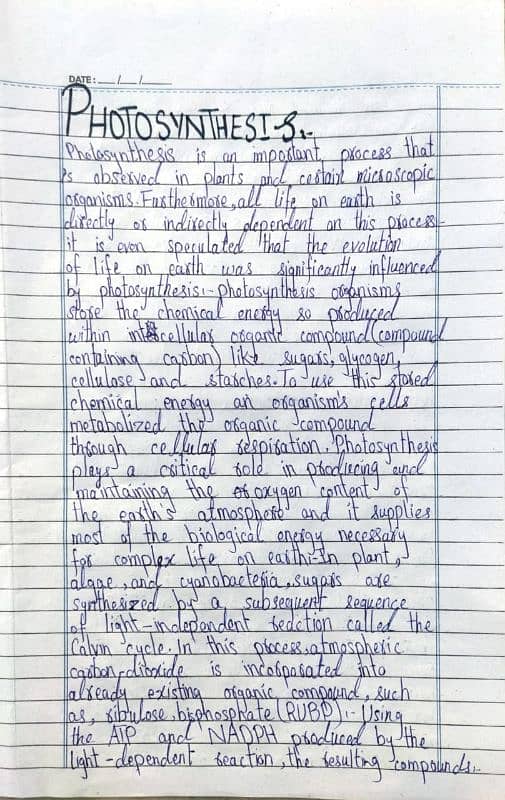 DATE: __/__/__
PHOTOSYNTHESI-S.-
Photosynthesis is an important process that
is observed in plants and certain microscopic
organisms. Furthermore, all life on earth is
directly or indirectly dependent on this process-
it is even speculated that the evolution
of life on earth was significantly influenced
by photosynthesis:- photosynthesis organisms
store the chemical energy so produced
within intracellular organic compound (compound
containing carbon) like sugars, glycogen,
cellulose and starches. To use this stored
chemical energy an organism's cells
metabolized the organic compound
through cellular respiration. Photosynthesis
plays a critical role in producing and
maintaining the oxygen content of
the earth's atmosphere and it supplies
most of the biological energy necessary
for complex life on earth:-In plant,
algae, and cyanobacteria, sugars are
synthesized by a subsequent sequence
of light-independent reaction called the
Calvin cycle. In this process, atmospheric
carbon-dioxide is incorporated into
already existing organic compound, such
as, ribulose bisphosphate (RUBP):- Using
the ATP and NADPH produced by the
light-dependent reaction, the resulting compounds.-